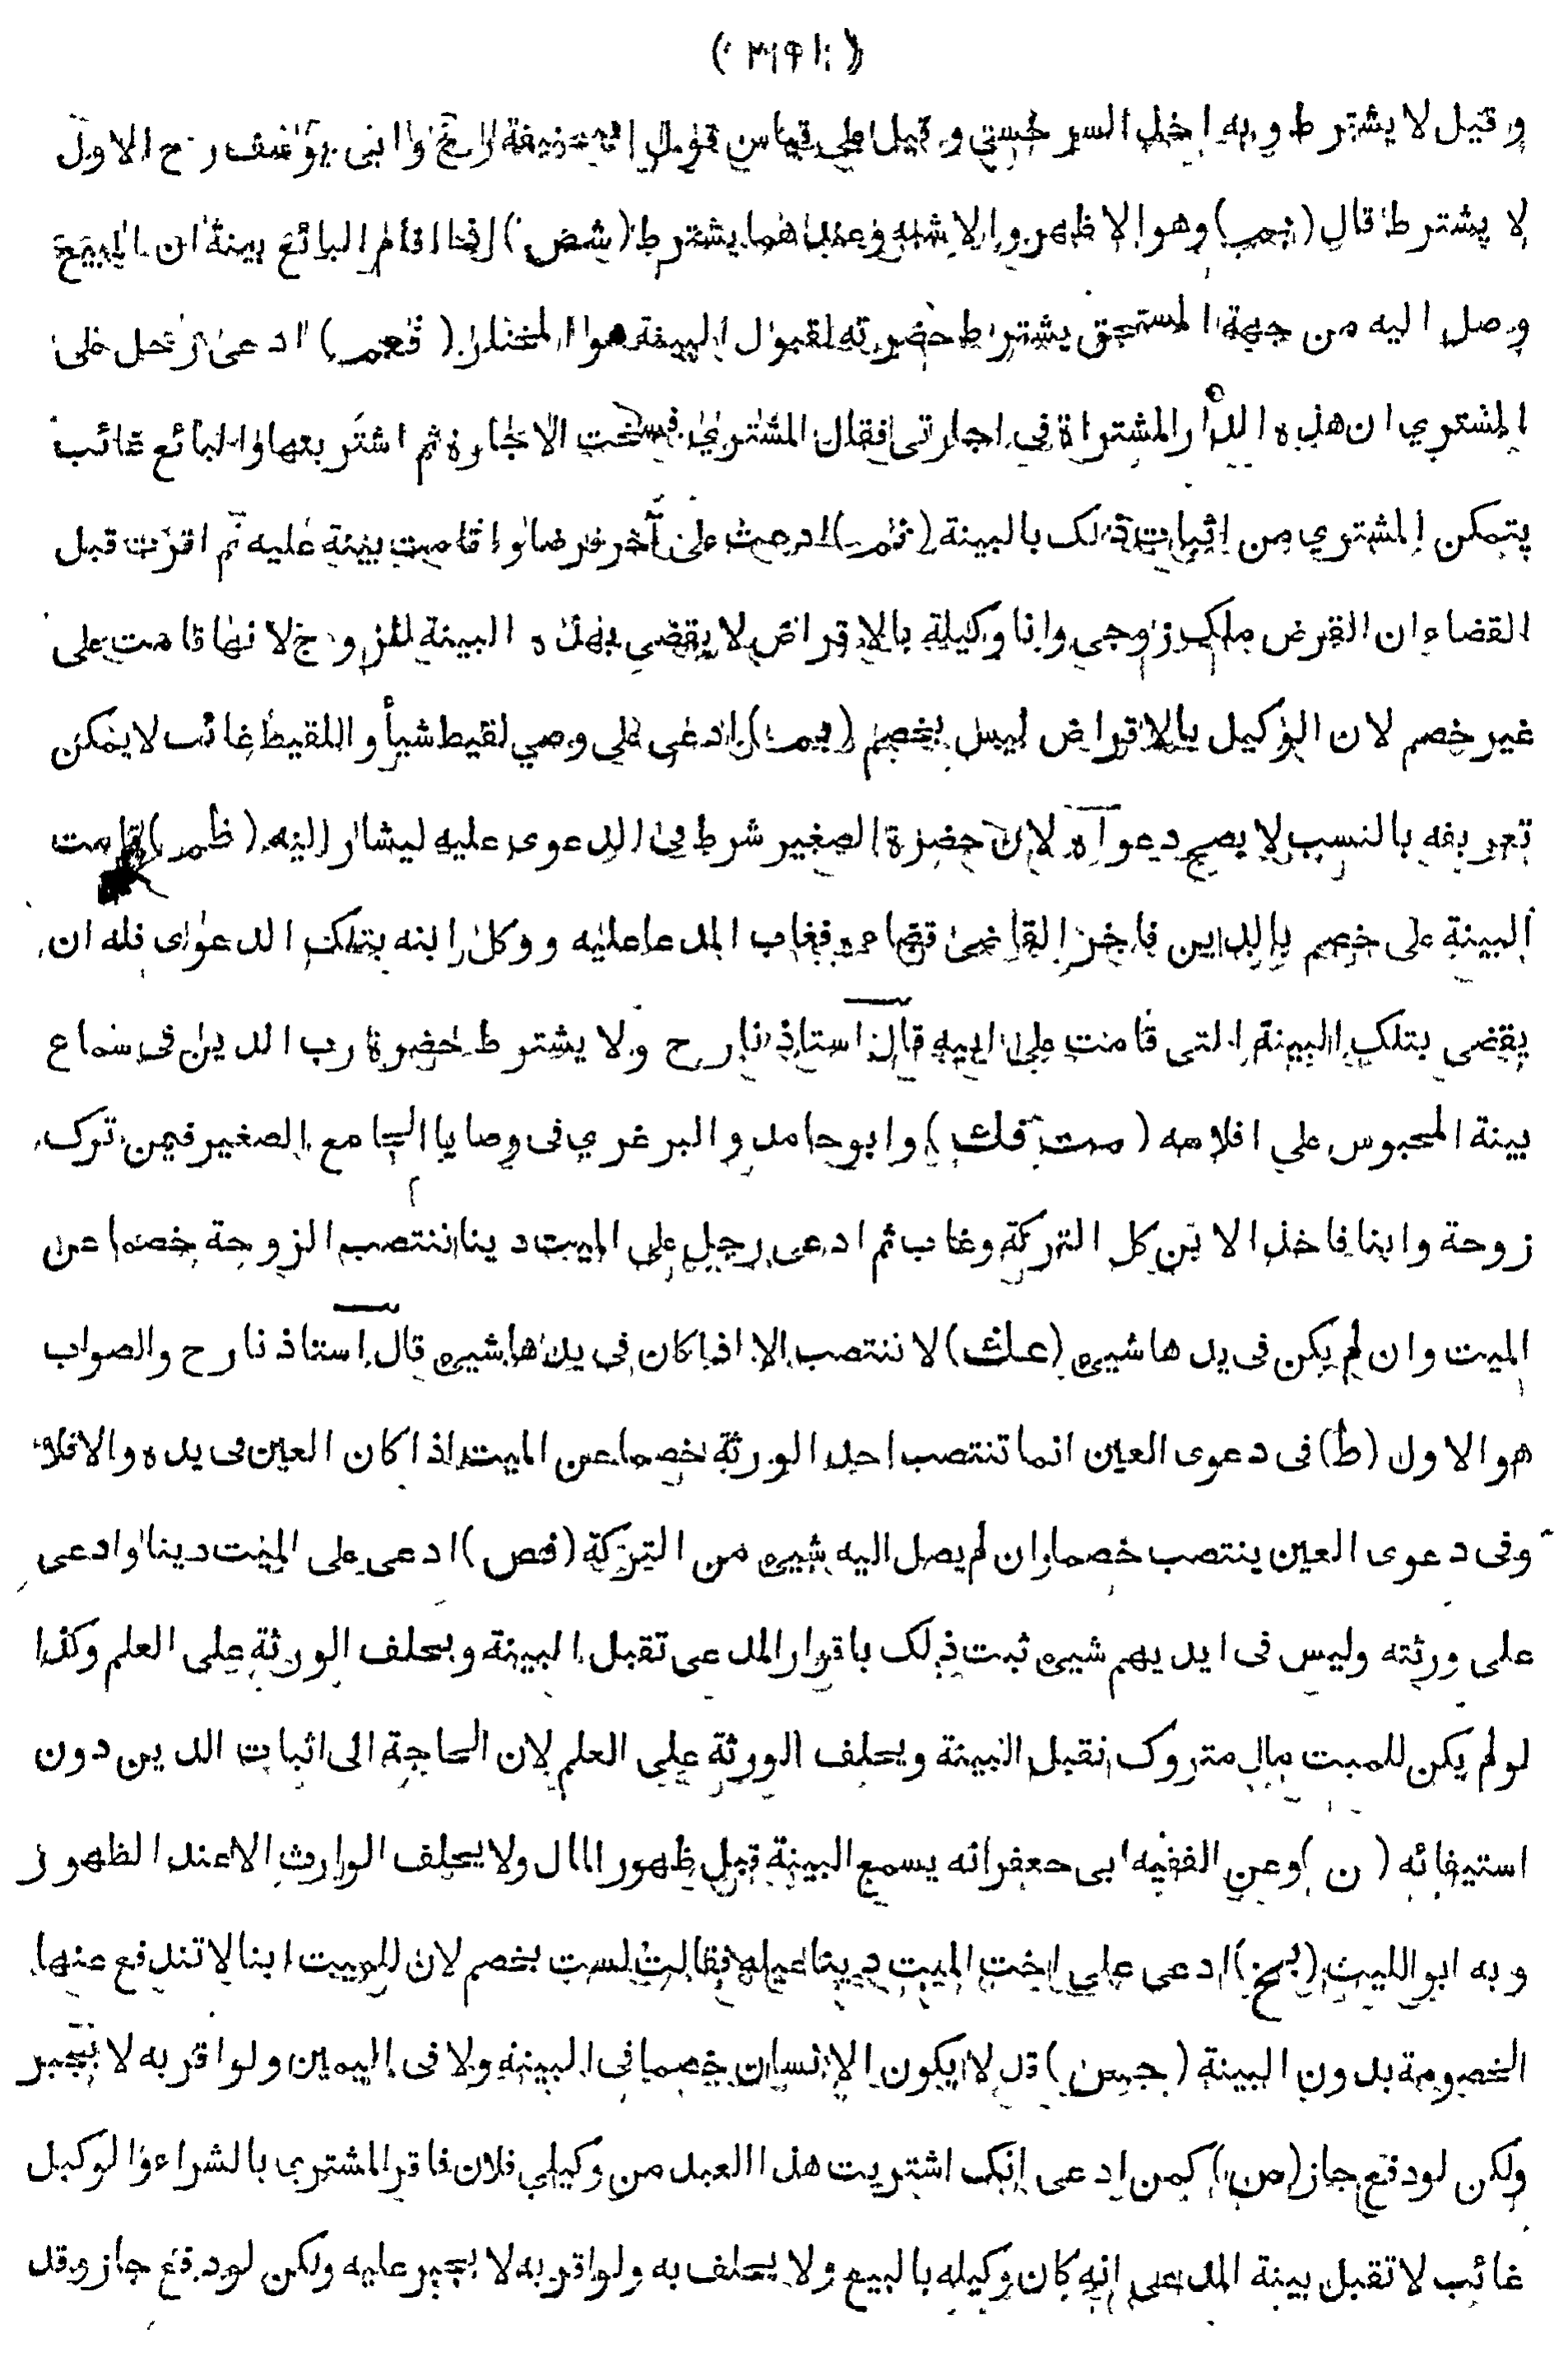 وقيل لا يشترط وبه اخذ السرخسي وقيل على قياس قول ابي حنيفة رح وابي يوسف رح الاول
لا يشترط قال (نجم) وهو الاظهر والاشبه وعندهما يشترط (شض) اذا اقام البائع بينة ان المبيع
وصل اليه من جهة المستحق يشترط حضرته لقبول البينة هو المختار (قعمر) ادعى رجل على
المشتري ان هذه الدار المشتراة في اجارتي فقال المشتري فسخت الاجارة ثم اشتريتها والبائع غائب
يتمكن المشتري من اثبات ذلك بالبينة ادعت على آخر قرضا واقامت بينة عليه ثم اقرت قبل
القضاء ان القرض ملك زوجى وانا وكيلة بالاقراض لا يقضى بهذه البينة للزوج لانها قامت على
غير خصم لان الوكيل بالاقراض ليس بخصم ادعى على وصي لقيط شيأ واللقيط غائب لا يمكن
تعريفه بالنسب لا يصح دعواه لان حضرة الصغير شرط فى الدعوى عليه ليشار اليه (ظمر) قامت
البينة على خصم بالدين فاخر القاضى قضاءه فغاب المدعا عليه ووكل ابنه بتلك الدعوى فله ان
يقضى بتلك البينة التى قامت على ابيه قال استاذنا رح ولا يشترط حضرة رب الدين فى سماع
بينة المحبوس على افلاسه (مت فك) وابو حامد والبرغري فى وصايا الجامع الصغير فيمن ترك
زوجة وابنا فاخذ الابن كل التركة وغاب ثم ادعى رجل على الميت دينا تنتصب الزوجة خصما عن
الميت وان لم يكن فى يدها شيء (عك) لا تنتصب الا اذا كان فى يدها شيء قال استاذنا رح والصواب
هو الاول (ط) فى دعوى العين انما تنتصب احد الورثة خصما عن الميت اذا كان العين فى يده والا فلا
وفى دعوى العين ينتصب خصما وان لم يصل اليه شيء من التركة (فص) ادعى على الميت دينا وادعى
على ورثته وليس فى ايديهم شيء ثبت ذلك باقرار المدعى تقبل البينة ويحلف الورثة على العلم وكذا
لو لم يكن للميت مال متروك تقبل البينة ويحلف الورثة على العلم لان الحاجة الى اثبات الدين دون
استيفائه (ن) وعن الفقيه ابى جعفر انه يسمع البينة قبل ظهور المال ولا يحلف الوارث الا عند الظهور
وبه ابو الليث (بخ) ادعى على اخت الميت دينا عليه فقالت لست بخصم لان للميت ابنا لا تندفع عنها
الخصومة بدون البينة قد لا يكون الانسان خصما فى البينة ولا فى اليمين ولو اقر به لا يجبر
ولكن لو دفع جاز (من) كمن ادعى انك اشتريت هذا العبد من وكيلي فلان فاقر المشتري بالشراء والوكيل
غائب لا تقبل بينة المدعى انه كان وكيله بالبيع ولا يحلف به ولو اقر به لا يجبر عليه ولكن لو دفع جاز وقد